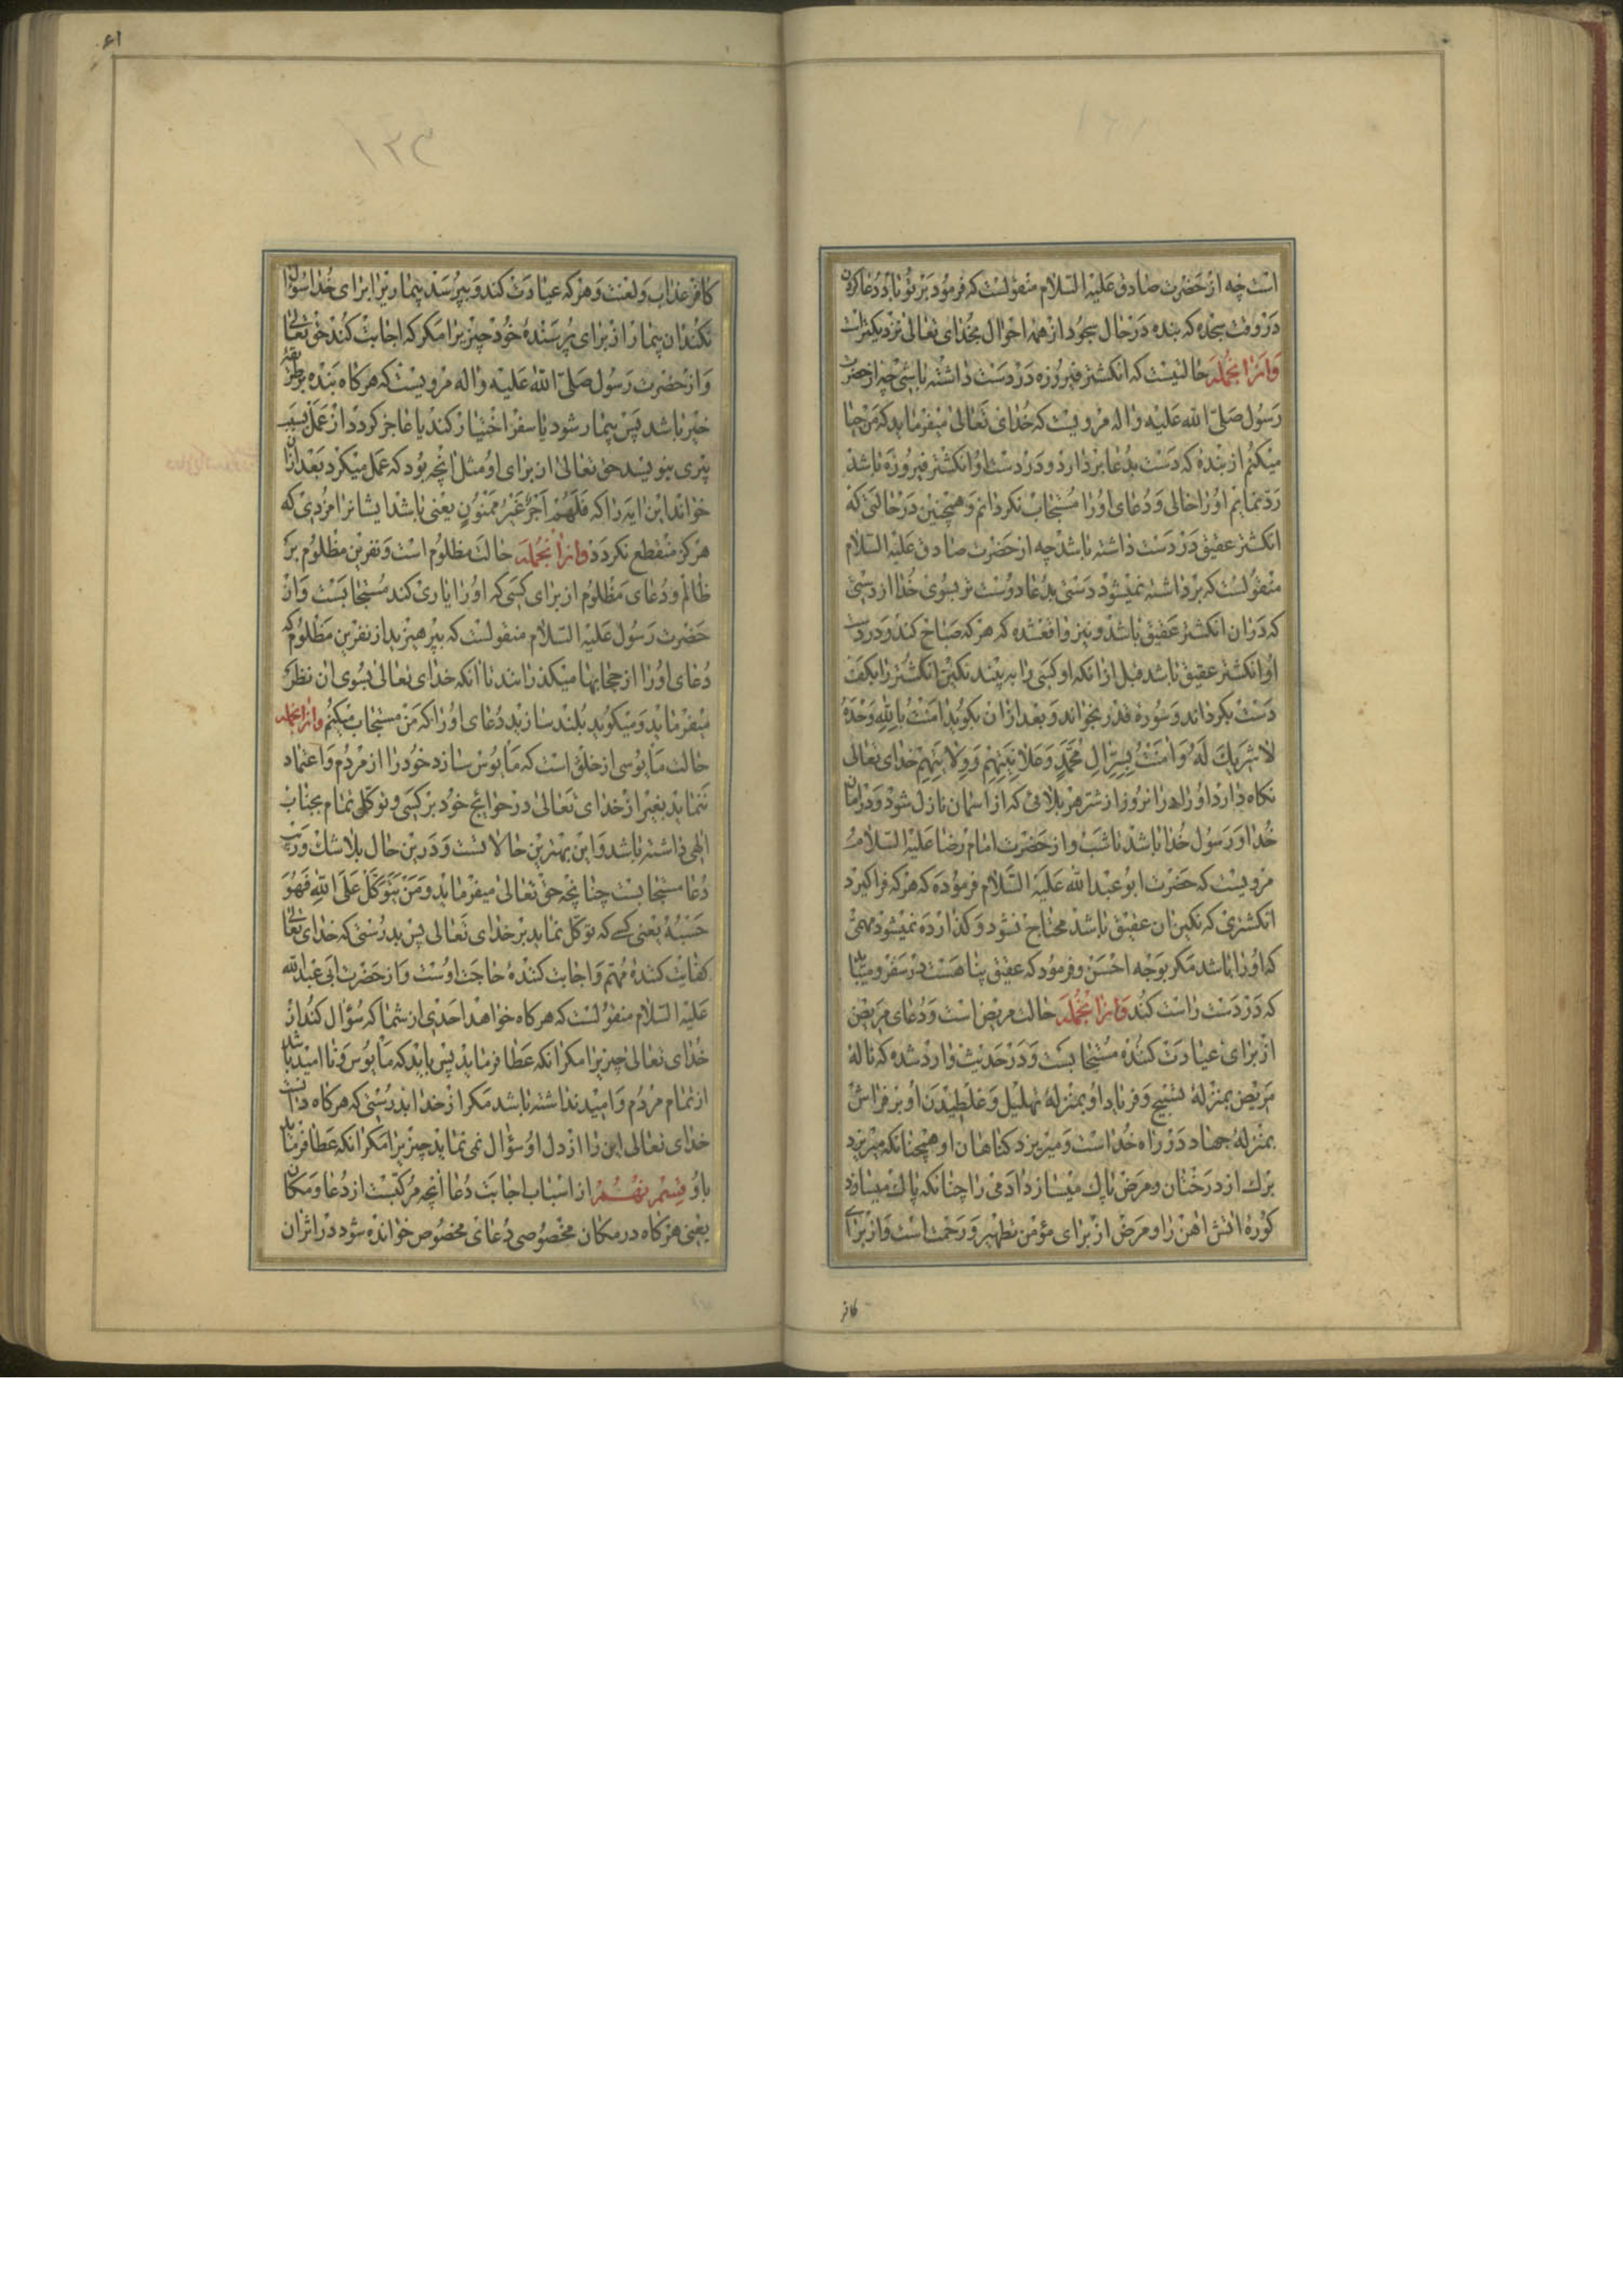 است چه از حضرت صادق علیه السلام منقولست که فرمود بر تو باد دعا کردن
در وقت سجده که بنده در حال سجود از همه احوال بخدای تعالی نزدیکتر است
و از انجمله حالتیست که انکشتر فیروزه در دست داشته باشی چه از حضرت
رسول صلی الله علیه واله مرویست که خدای تعالی میفرماید که من حیا
میکنم از بنده که دست بدعا بردارد و در دست او انکشتر فیروزه باشد
رد نمایم او را خالی و دعای او را مستجاب نکردانم و همچنین در حالتی که
انکشتر عقیق در دست داشته باشد چه از حضرت صادق علیه السلام
منقولست که برداشته نمیشود دستی بدعا دوست تر بسوی خدا از دستی
که در ان انکشتر عقیق باشد و نیز واقعشده که هر که صباح کند و در دست
او انکشتر عقیق باشد قبل از انکه او کسی را به بیند نکین انکشتر را بکف
دست بکرداند و سوره قدر بخواند و بعد از ان بکوید امنت بالله وحده
لا شریک له و امنت بسر ال محمد و علانیتهم و ولایتهم خدای تعالی
نکاه دارد او را در انروز از شر هر بلائی که از اسمان نازل شود و در امان
خدا و رسول خدا باشد تا شب و از حضرت امام رضا علیه السلام
مرویست که حضرت ابو عبد الله علیه السلام فرموده که هر که فرا کیرد
انکشتری که نکین ان عقیق باشد محتاج نشود و کذارده نمیشود مهمی
که او را باشد مکر بوجه احسن و فرمود که عقیق پناهست در سفر و میباید
که در دست راست کند و از انجمله حالت مریض است و دعای مریض
از برای عیادت کننده مستجابست و در حدیث وارد شده که ناله
مریض بمنزله تسبیح و فریاد او بمنزله تهلیل و غلطیدن او بر فراش
بمنزله جهاد در راه خداست و میریزد کناهان او همچنانکه میریزد
برک از درختان و مرض پاک میسازد ادمی را چنانکه پاک میسازد
کوره اتش اهن را و مرض از برای مؤمن تطهیر و رحمت است و از برای
کافر
۶۱
۱۳۳
کافر عذاب و لعنت و هر که عیادت کند و بپرسد بیماریرا برای خدا سؤال
نکند ان بیمار از برای پرسنده خود چیزیرا مکر که اجابت کند حق تعالی
و از حضرت رسول صلی الله علیه واله مرویست که هر کاه بنده بر طریقه
خیر باشد پس بیمار شود یا سفر اختیار کند یا عاجز کردد از عمل بسبب
پیری بنویسد حق تعالی از برای او مثل انچه بود که عمل میکرد بعد از ان
خواند این ایه را که فلهم اجر غیر ممنون یعنی باشد ایشانرا مزدی که
هرکز منقطع نکردد و از انجمله حالت مظلوم است و نفرین مظلوم بر
ظالم و دعای مظلوم از برای کسی که او را یاری کند مستجابست و از
حضرت رسول علیه السلام منقولست که بپرهیزید از نفرین مظلوم که
دعای او را از حجابها میکذرانند تا انکه خدای تعالی بسوی ان نظر
میفرماید و میکوید بلند سازید دعای او را که من مستجاب میکنم و از انجمله
حالت مایوسی از خلق است که مایوس سازد خود را از مردم و اعتماد
ننماید بغیر از خدای تعالی در حوایج خود بر کسی و توکلی تمام بجناب
الهی داشته باشد و این بهترین حالاتست و درین حال بلا شک و ریب
دعا مستجابست چنانچه حق تعالی میفرماید و من یتوکل علی الله فهو
حسبه یعنی کسی که توکل نماید بر خدای تعالی پس بدرستی که خدای تعالی
کفایت کننده مهم و اجابت کننده حاجت اوست و از حضرت ابی عبد الله
علیه السلام منقولست که هر کاه خواهد احدی از شما که سؤال کند از
خدای تعالی چیزیرا مکر انکه عطا فرماید پس باید که مایوس و نا امید باشد
از تمام مردم و امید نداشته باشد مکر از خدا بدرستی که هر کاه دانست
خدای تعالی این را از دل او سؤال نمی نماید چیزیرا مکر انکه عطا فرماید
باو قسم نهم از اسباب اجابت دعا انچه مرکبست از دعا و مکان
یعنی هر کاه در مکان مخصوصی دعای مخصوص خوانده شود در اثر ان